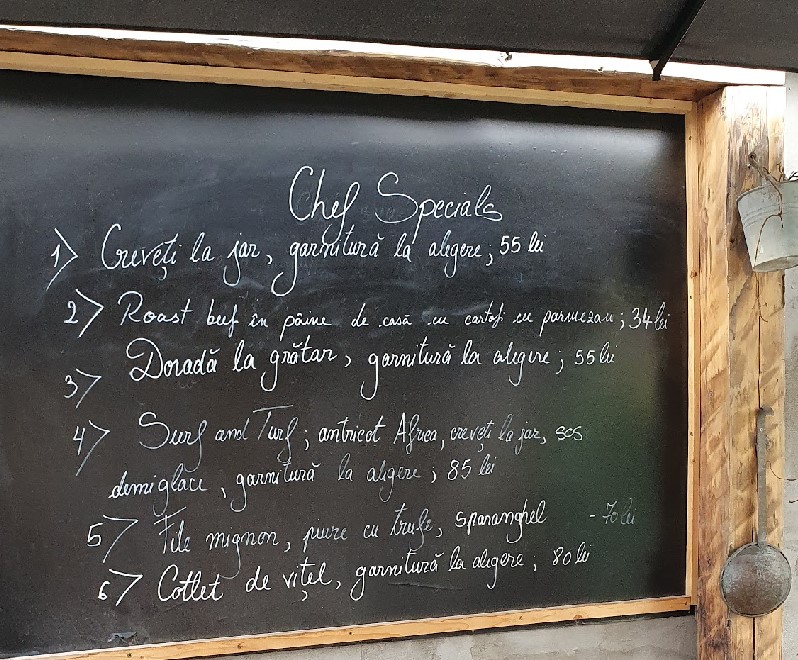 Chef Specials
1) Creveți la jar, garnitură la alegere, 55 lei
2) Roast buf în pâine de casă cu cartofi cu parmezan; 34 lei
3) Doradă la grătar, garnitură la alegere; 55 lei
4) Surf and Turf; antricot Afrea, creveți la jar, sos
demiglace, garnitură la alegere; 85 lei
5) File mignon, piure cu trufe, sparanghel - 70 lei
6) Cotlet de vițel, garnitură la alegere; 80 lei